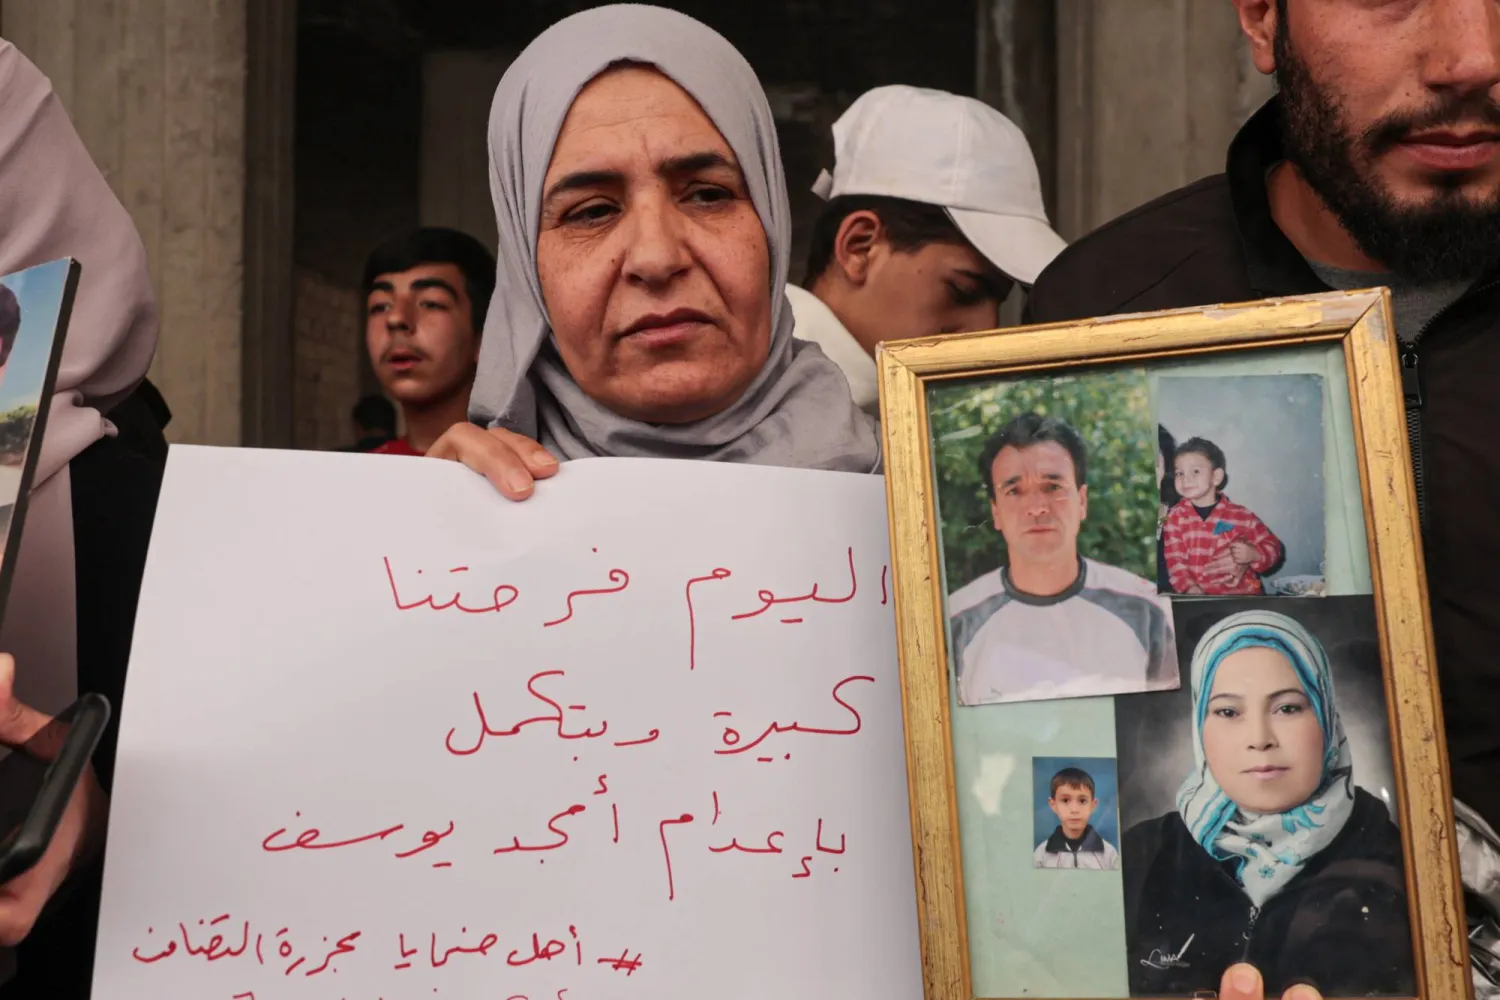 اليوم فرحتنا
كبيرة وبتكمل
بإعدام أمجد يوسف
#أهل ضحايا مجزرة التضامن